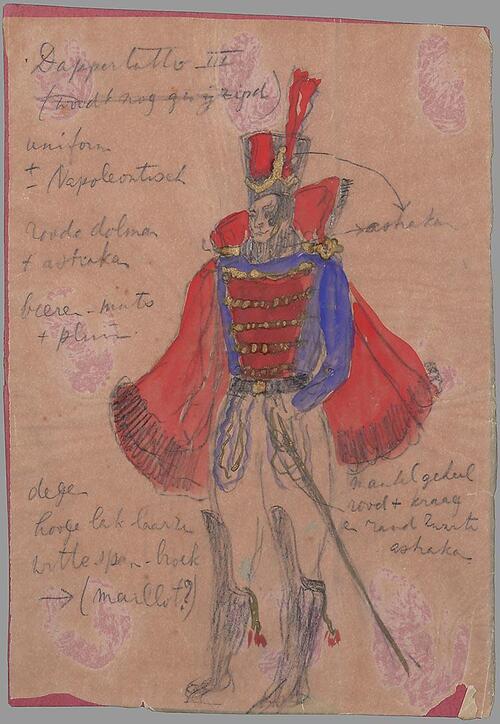 Dappertutto III
(wordt nog gewijzigd)
uniform
± Napoleontisch
roode dolman
+ astrakan
beeren-muts
+ pluim
→ astrakan
degen
hooge lak laarzen
witte span-broek
→ (maillot?)
mantel geheel
rood + kraag
en rand zwarte
astrakan